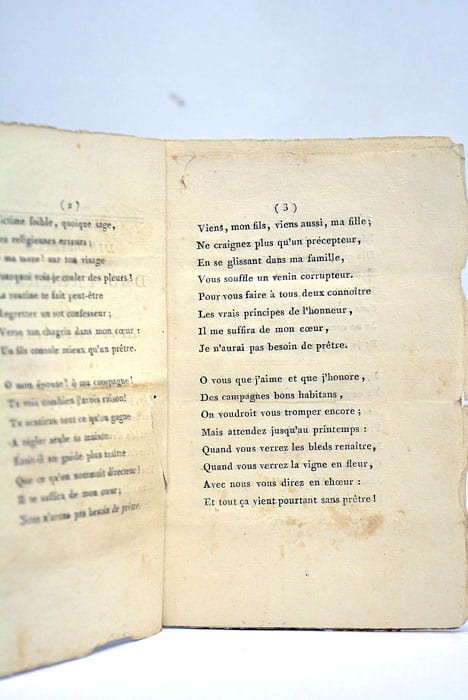 ( 2 )
ictime foible, quoique sage,
es religieuses erreurs;
ma mere! sur ton visage
ourquoi vois-je couler des pleurs!
a routine te fait peut-être
egretter un sot confesseur;
Verse ton chagrin dans mon cœur:
Un fils console mieux qu'un prêtre.
O mon épouse! ô ma compagne!
Tu vois combien j'avois raison!
Tu sentiras tout ce qu'on gagne
A régler seule sa maison.
un guide plus traître
Que ce qu'on nommoit directeur!
Il te suffira de mon cœur;
Nous n'avons pas besoin de prêtre.
( 3 )
Viens, mon fils, viens aussi, ma fille;
Ne craignez plus qu'un précepteur,
En se glissant dans ma famille,
Vous souffle un venin corrupteur.
Pour vous faire à tous deux connoître
Les vrais principes de l'honneur,
Il me suffira de mon cœur,
Je n'aurai pas besoin de prêtre.
O vous que j'aime et que j'honore,
Des campagnes bons habitans,
On voudroit vous tromper encore;
Mais attendez jusqu'au printemps:
Quand vous verrez les bleds renaître,
Quand vous verrez la vigne en fleur,
Avec nous vous direz en chœur:
Et tout ça vient pourtant sans prêtre!